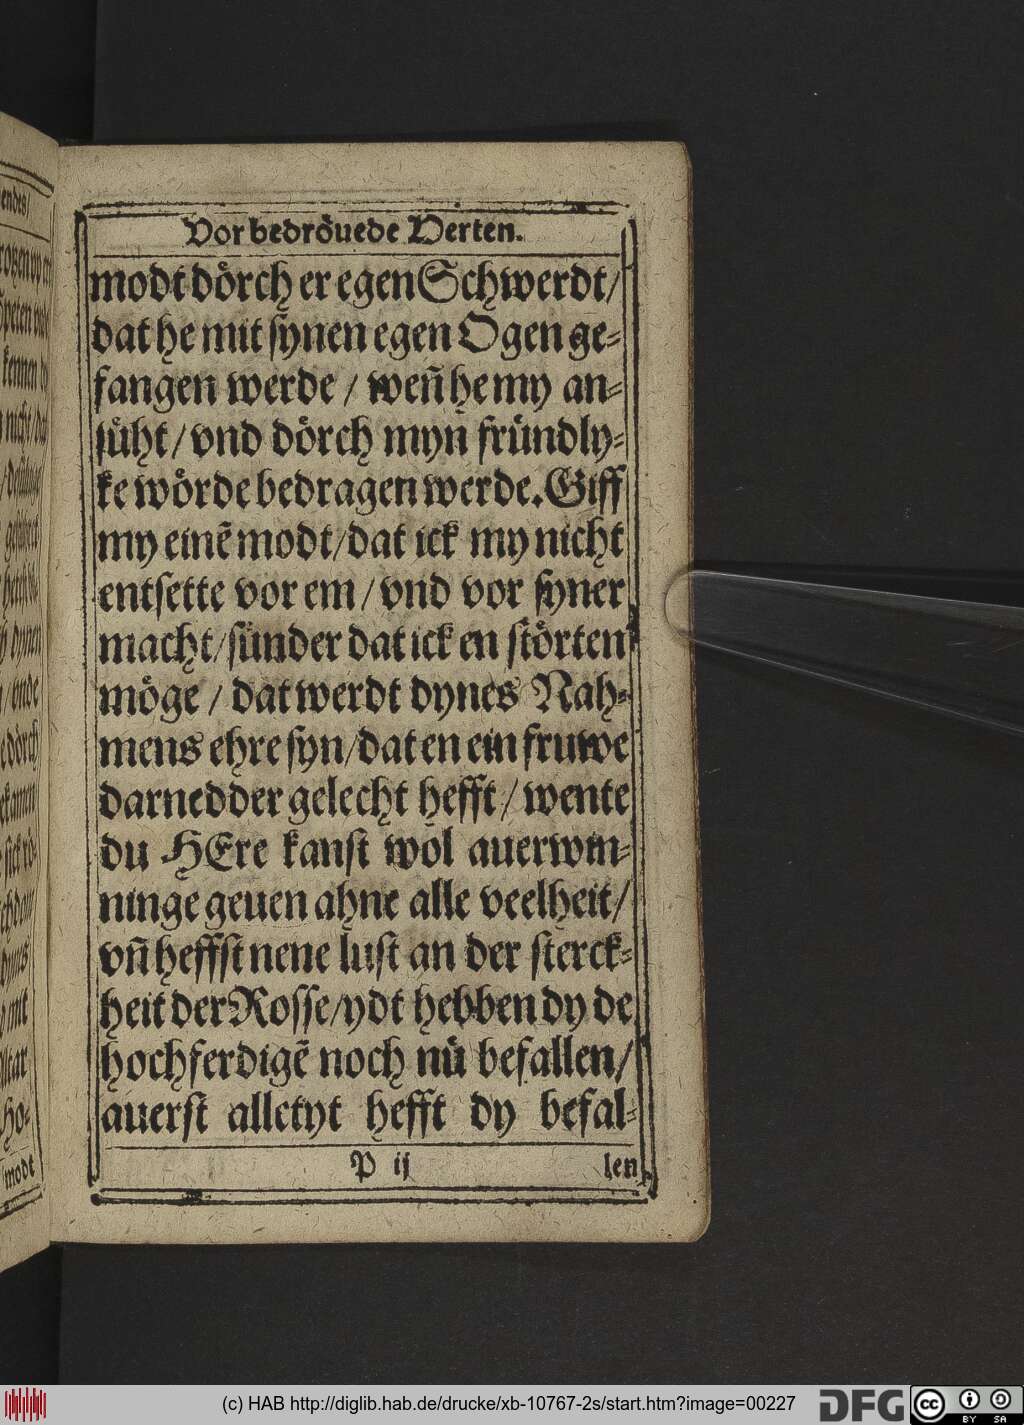 Vor bedröuede Herten.
modt dörch er egen Schwerdt/
dat he mit synen egen Ogen ge-
fangen werde / weñ he my an-
süht / vnd dörch myn fründly-
ke wörde bedragen werde. Giff
my einẽ modt / dat ick my nicht
entsette vor em / vnd vor syner
macht / sünder dat ick en störten
möge / dat werdt dynes Nah-
mens ehre syn / dat en ein fruwe
darnedder gelecht hefft / wente
du HEre kanst wol auerwin-
ninge geuen ahne alle veelheit /
vñ heffst nene lust an der sterck-
heit der Rosse / ydt hebben dy de
hochferdigẽ noch nü befallen /
auerst alletyt hefft dy befal-
P ij
len
modt
(c) HAB http://diglib.hab.de/drucke/xb-10767-2s/start.htm?image=00227
DFG
cc
BY SA